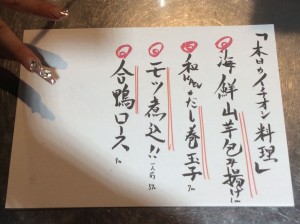 「本日のイチオシ料理」
海鮮山芋包み揚げ
和風だし巻玉子
モツ煮込!!
合鴨ロース